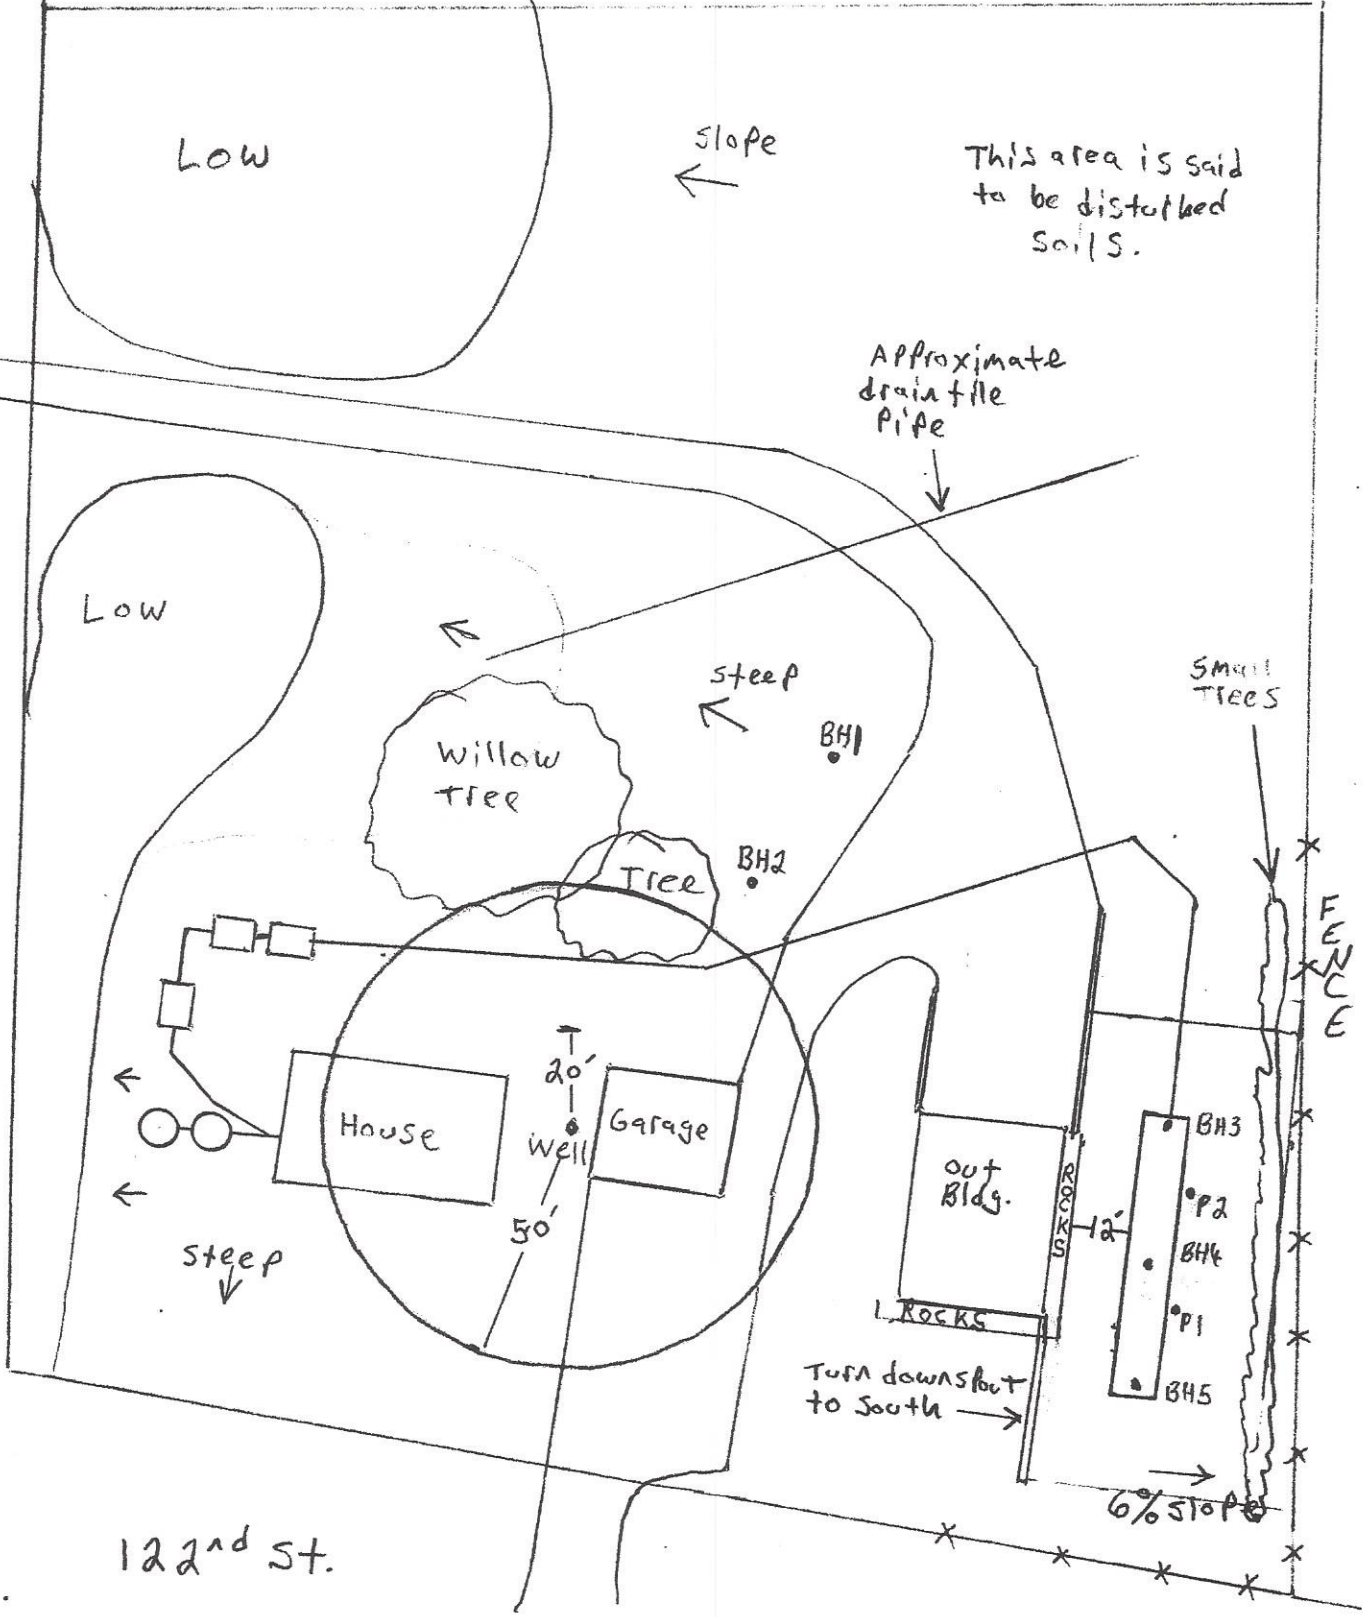 Low
slope
This area is said
to be disturbed
soils.
Approximate
drain tile
pipe
Low
steep
Small
Trees
BH1
Willow
Tree
BH2
Tree
FENCE
20'
House
Well
Garage
50'
Out
Bldg.
ROCKS
12'
BH3
P2
BH4
P1
BH5
steep
ROCKS
Turn downspout
to south
6% slope
122nd St.